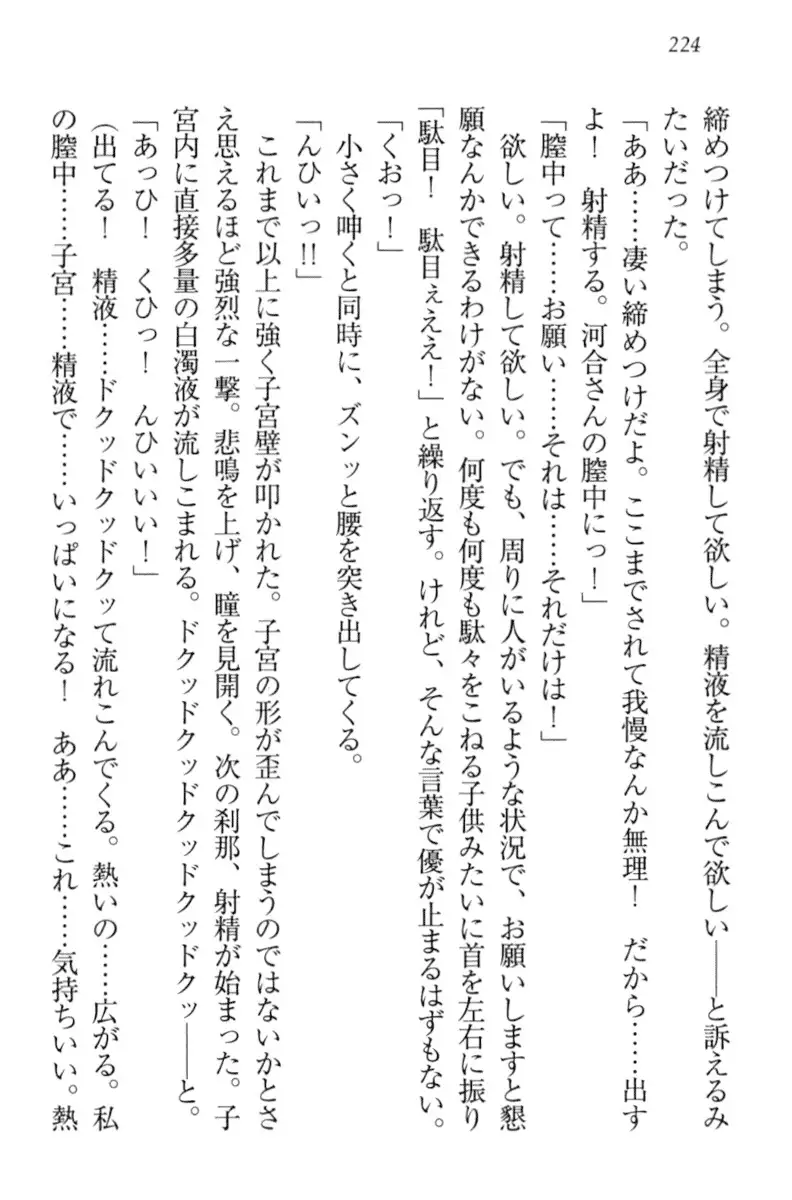 224
締めつけてしまう。全身で射精して欲しい。精液を流しこんで欲しい――と訴えるみ
たいだった。
「ああ……凄い締めつけだよ。ここまでされて我慢なんか無理！　だから……出す
よ！　射精する。河合さんの膣中にっ！」
「膣中って……お願い……それは……それだけは！」
欲しい。射精して欲しい。でも、周りに人がいるような状況で、お願いしますと懇
願なんかできるわけがない。何度も何度も駄々をこねる子供みたいに首を左右に振り
「駄目！　駄目ぇええ！」と繰り返す。けれど、そんな言葉で優が止まるはずもない。
「くおっ！」
小さく呻くと同時に、ズンッと腰を突き出してくる。
「んひいっ!!」
これまで以上に強く子宮壁が叩かれた。子宮の形が歪んでしまうのではないかとさ
え思えるほど強烈な一撃。悲鳴を上げ、瞳を見開く。次の刹那、射精が始まった。子
宮内に直接多量の白濁液が流しこまれる。ドクッドクッドクッドクッ――と。
「あっひ！　くひっ！　んひいいい！」
（出てる！　精液……ドクッドクッドクッて流れこんでくる。熱いの……広がる。私
の膣中……子宮……精液で……いっぱいになる！　ああ……これ……気持ちいい。熱